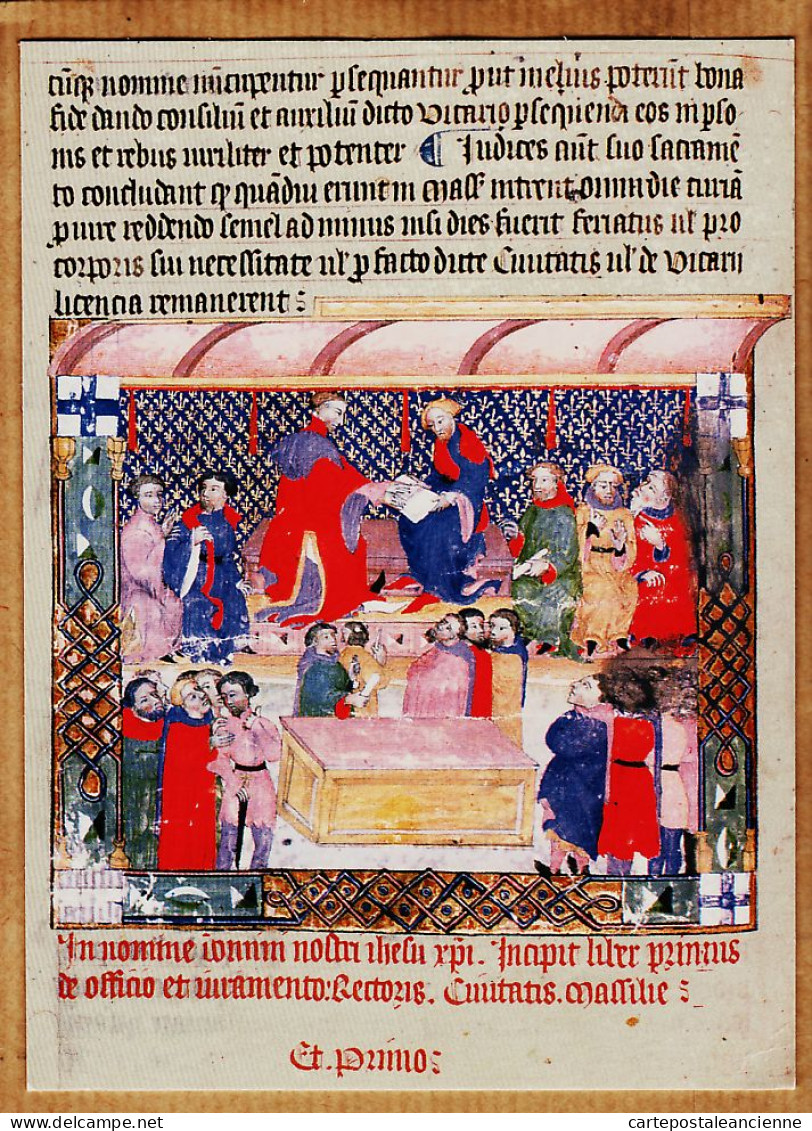 cūqꝫ nomine nūcupentur ꝑsequantur ꝓut melius poterūt bona
fide dando consiliū et auxiliū dicto vicario ꝑsequendi eos in ꝑso
nis et rebus viriliter et potenter ¶ Iudices aūt suo sacramē
to concludant ꝙ quādiu erunt in Mass intrent omni die curiā
ꝓ iure reddendo semel ad minus nisi dies fuerit feriatus ul pro
corporis sui necessitate ul ꝓ facto dicte Ciuitatis ul de vicarii
licencia remanerent:
In nomine domini nostri ihesu xpi. Incipit liber primus
de officio et iuramento: Rectoris. Ciuitatis. Massilie:
Et. Primo:
cartepostaleancienne